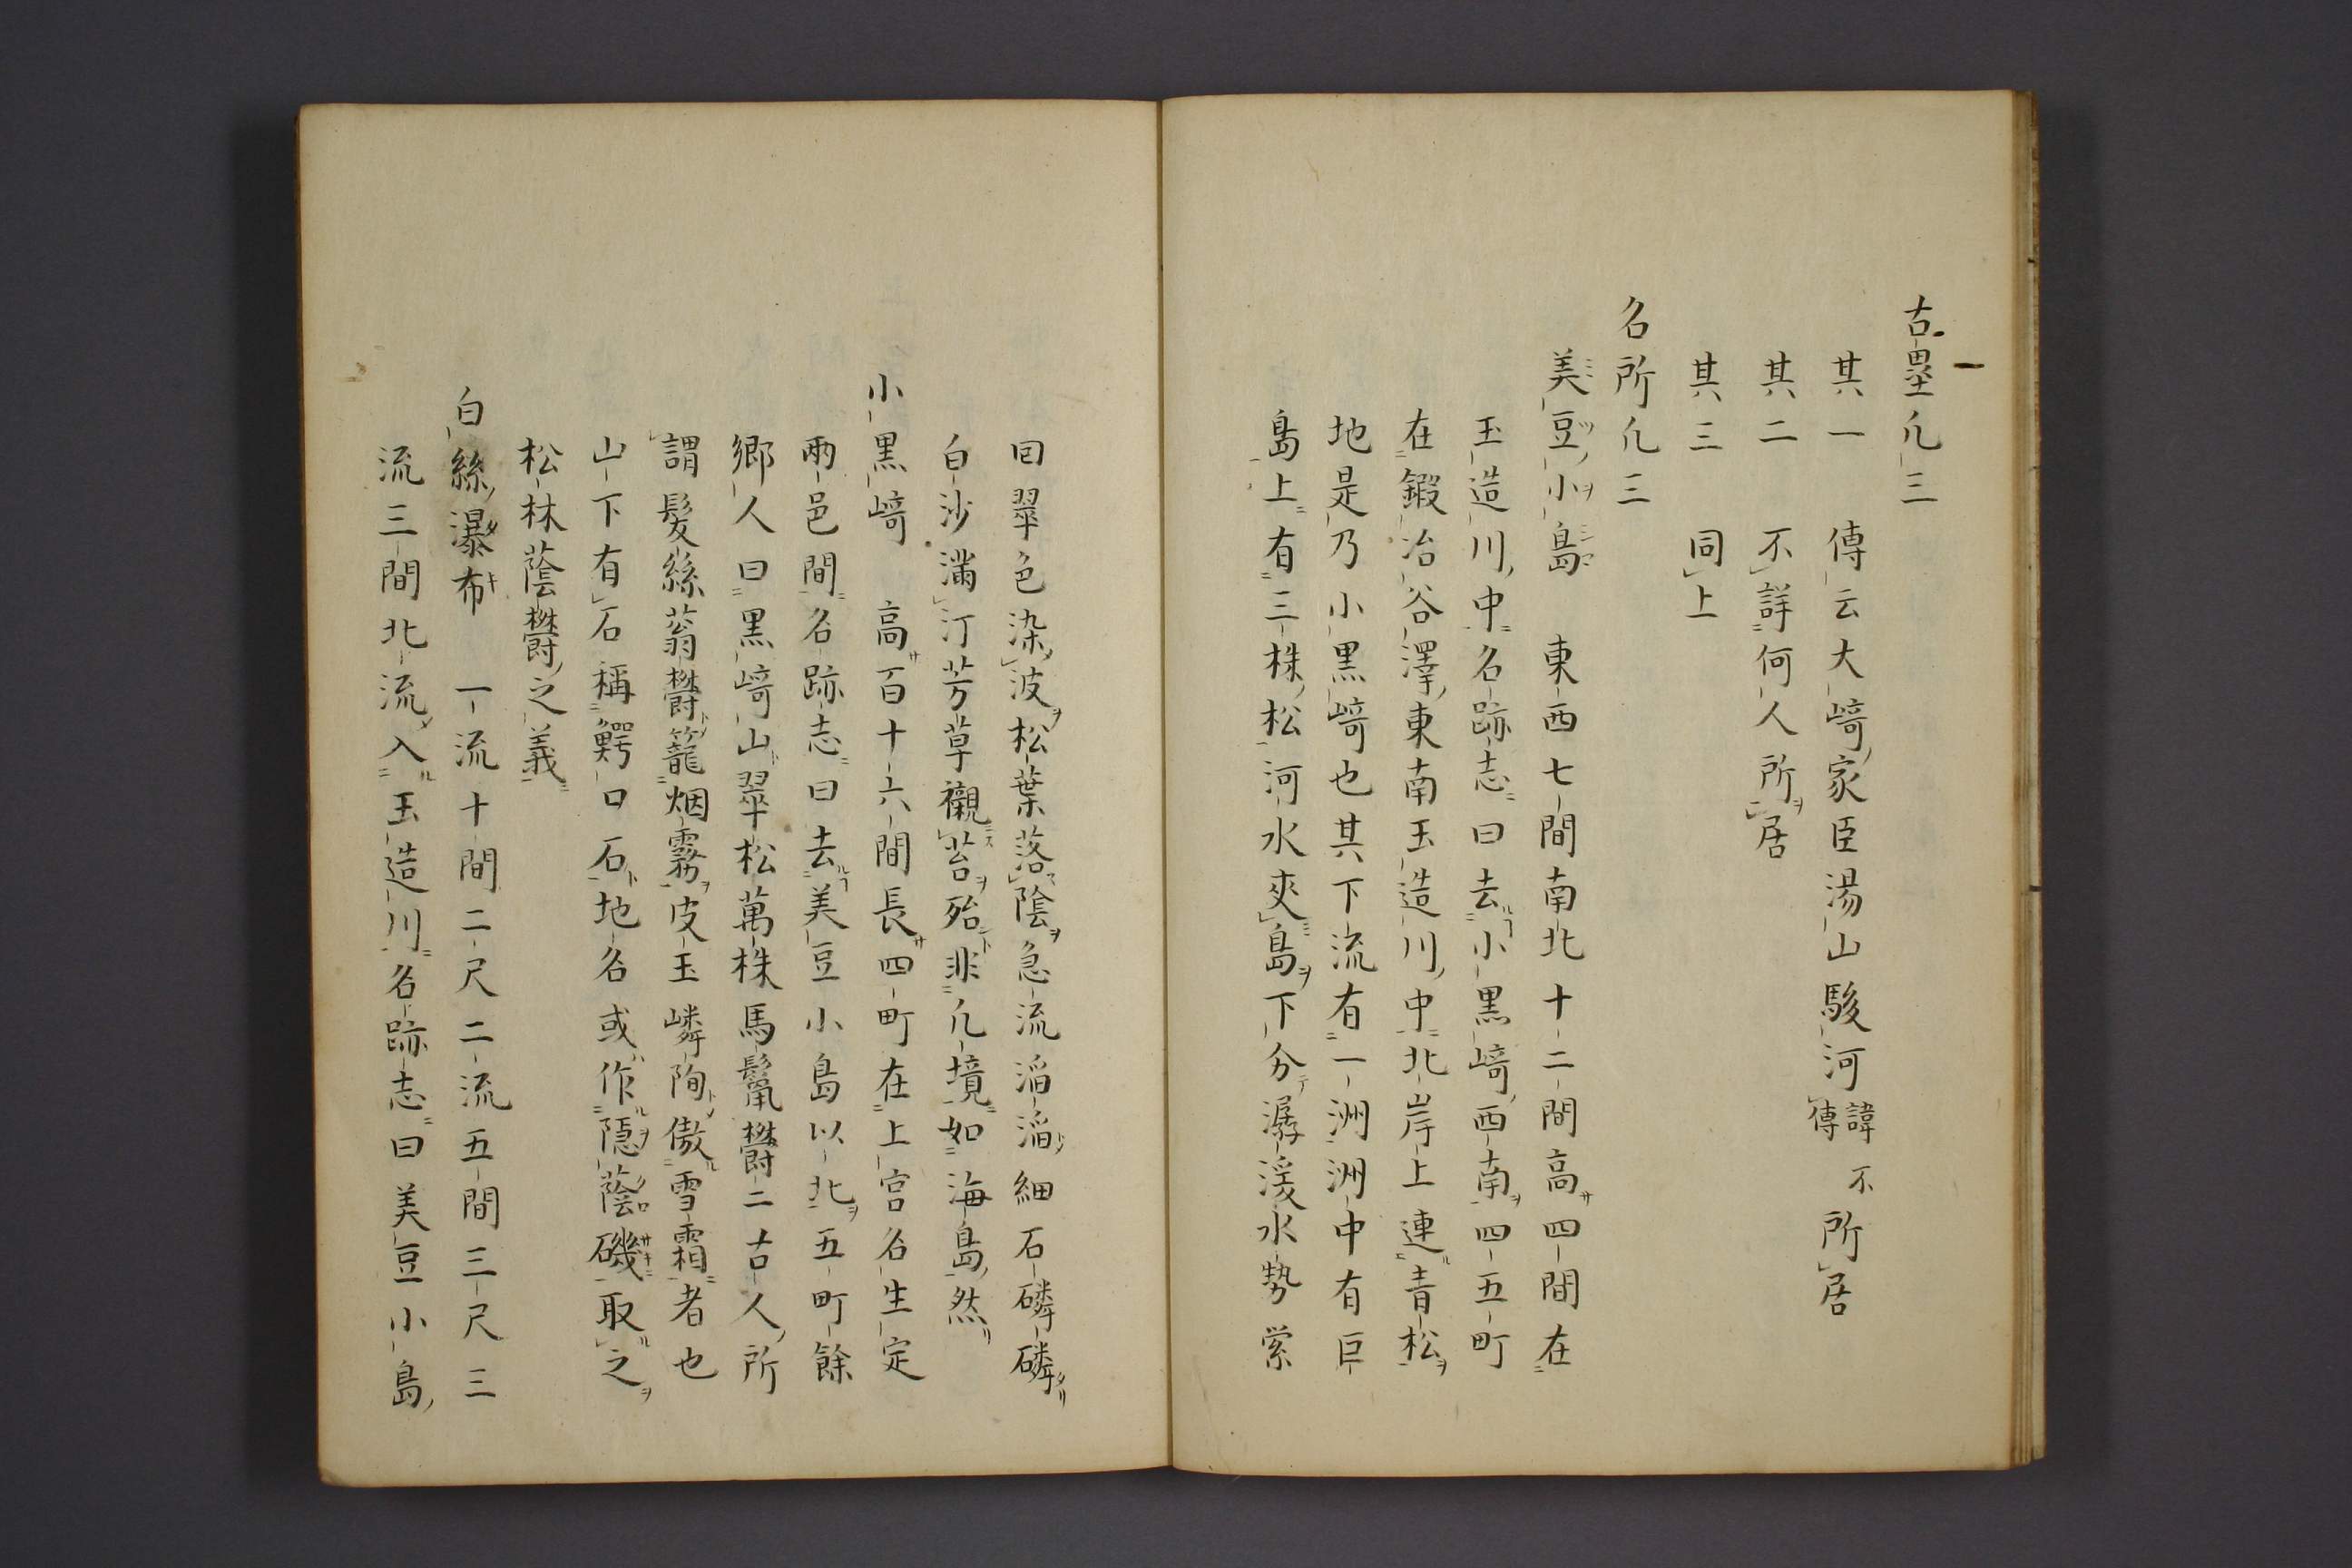 古壘凢三
其一　傳云大﨑家臣湯山駿河諱不傳所居
其二　不詳何人所居
其三　同上
名所凢三
美豆小島　東西七間南北十二間髙四間在
玉造川中名跡志曰去小黒﨑西南四五町
在鍜冶谷澤東南玉造川中北岸上連青松
地是乃小黒﨑也其下流有一洲洲中有巨
島上有三株松河水夾島下分潺湲水勢縈
回翠色染波松葉落陰急流滔滔細石磷磷
白沙滿汀芳草襯苔殆非凢境如海島然
小黒﨑　高百十六間長四町在上宮名生定
兩邑間名跡志曰去美豆小島以北五町餘
郷人曰黒﨑山翠松萬株馬鬣欝二古人所
謂髮絲蓊欝籠烟霧皮玉嶙峋傲雪霜者也
山下有石稱鰐口石地名或作隠蔭磯取之
松林蔭欝之義
白絲瀑布　一流十間二尺二流五間三尺三
流三間北流入玉造川名跡志曰美豆小島